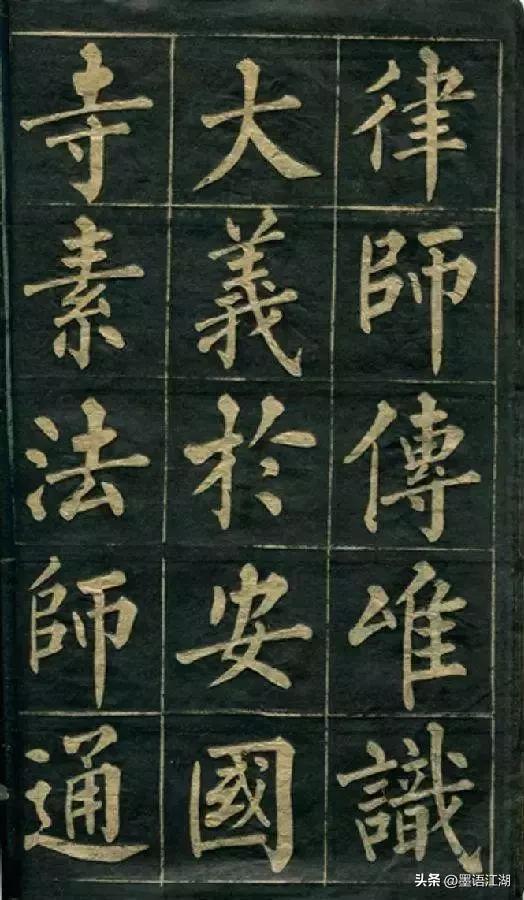 律師傳唯識
大義於安國
寺素法師通
头条 @墨语江湖